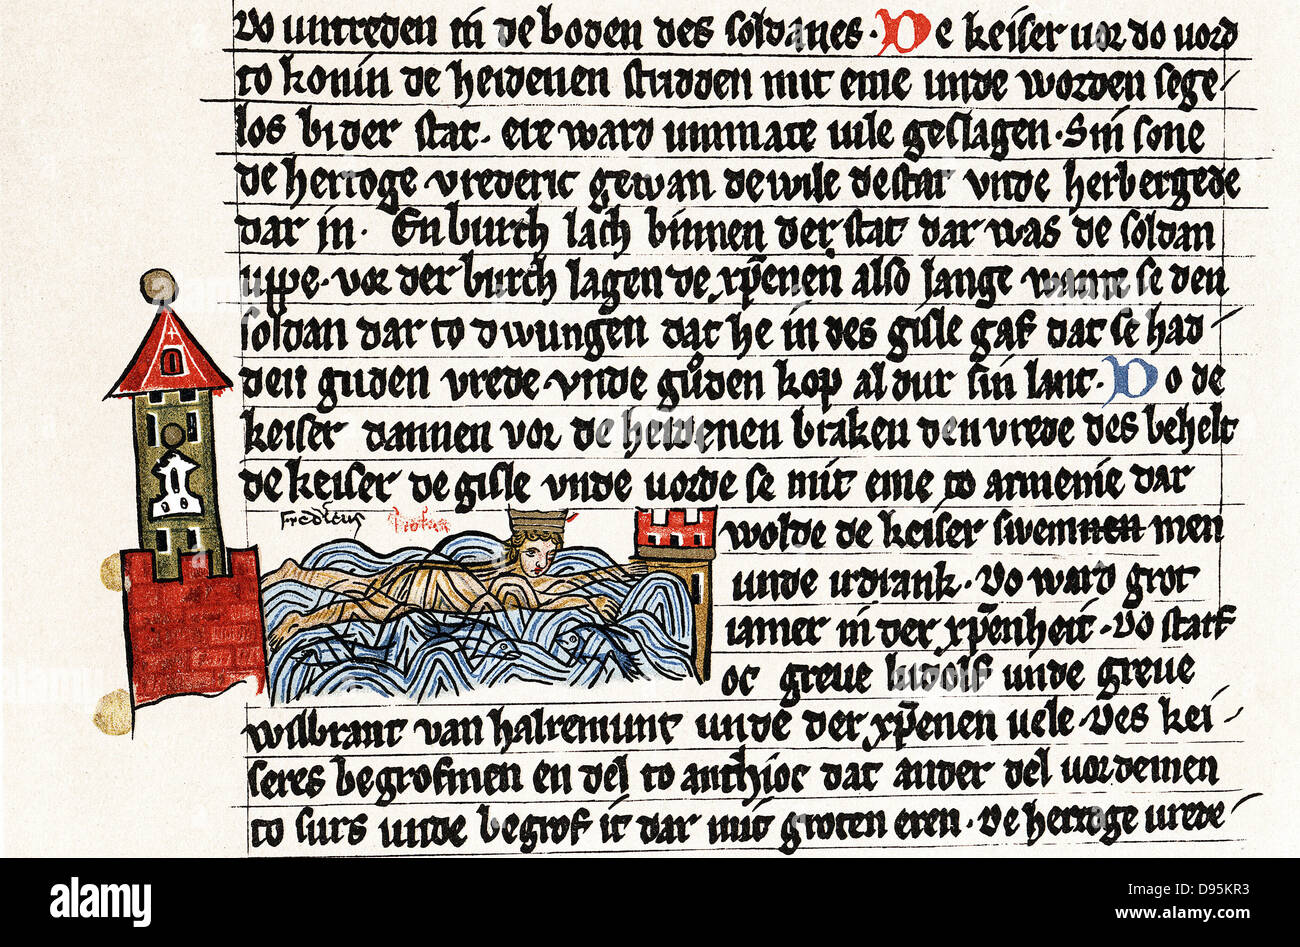 Do untreden in de boden des soldanes. De keiser vor do vord
to konin de heidenen studden mit eme unde worden sege
los bi der stat. ere ward unmate vile geslagen. Sin sone
de hertoge vrederic gewan de wile de stat unde herbergede
dar in. En burch lach binnen der stat dar was de soldan
uppe. vor der burch lagen de xp̄enen also lange wante se den
soldan dar to dwungen dat he in des gisle gaf dat se had
den guden vrede. unde guͦden kop al dur sin lant. Do de
keiser dannen vor de heidenen braken den vrede des behelt
de keiser de gisle unde vorde se mit eme to armenie dar
Fredericus
wolde de keiser swemmen
unde irdrank. Do ward grot
iamer in der xp̄enheit. Do starf
oc greve ludolf unde greve
wilbrant van halremunt unde der xp̄enen vele. Des kei
seres begrofmen en del to anthioc dat ander del vordemen
to surs unde begrof it dar mit groten eren. De hertoge vrede
alamy
alamy
Image ID: D95KR3
www.alamy.com